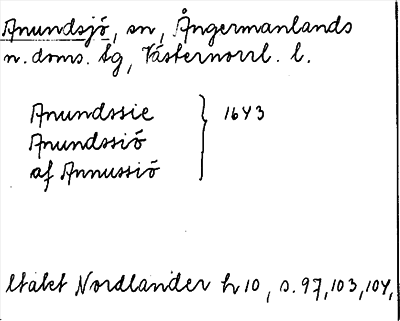 Anundsjö, sn, Ångermanlands
n. doms. tg, Västernorrl. l.
Anundssie } 1643
Anundssiö
af Annussiö
Nordlander h 10, s. 97, 103, 104,